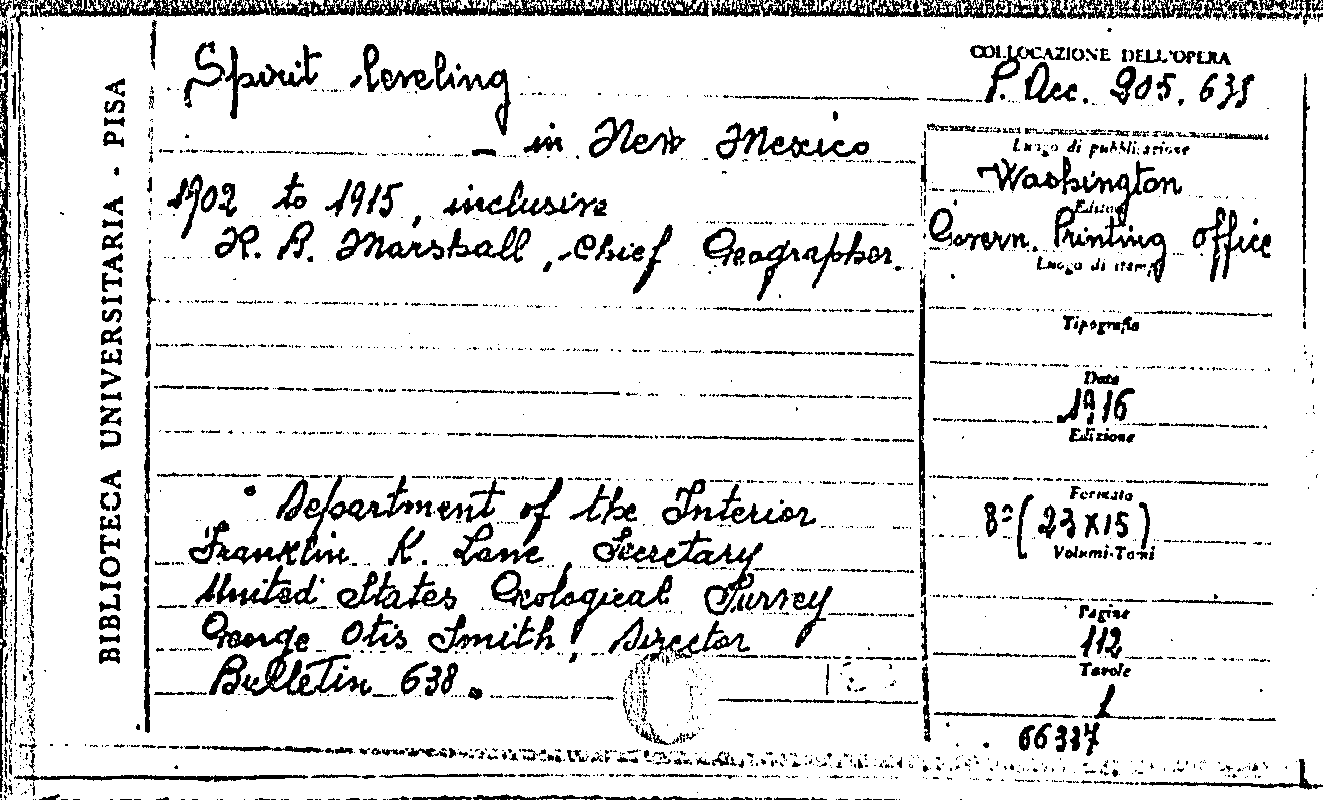 BIBLIOTECA UNIVERSITARIA - PISA
Spirit leveling
- in New Mexico
1902 to 1915, inclusive
R. B. Marshall, Chief Geographer.
Department of the Interior
Franklin K. Lane, Secretary
United States Geological Survey
George Otis Smith, Director
Bulletin 638.
COLLOCAZIONE DELL'OPERA
P. Acc. 205. 638
Luogo di pubblicazione
Washington
Editore
Govern. Printing Office
Luogo di stampa
Tipografia
Data
1916
Edizione
Formato
8° (23 x 15)
Volumi-Tomi
Pagine
112
Tavole
1
66337